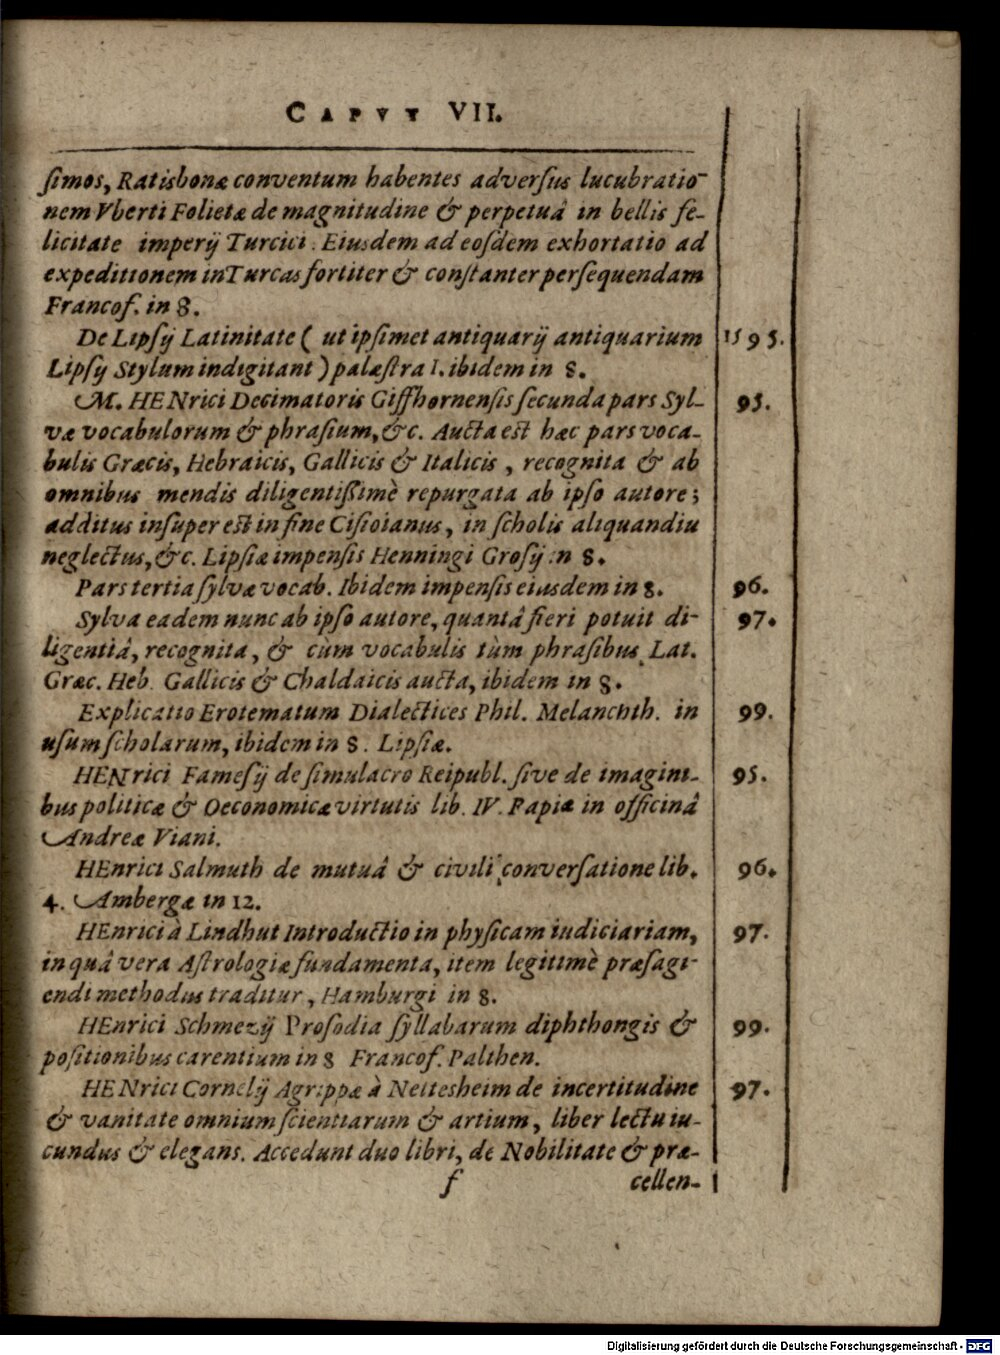 CAPVT VII.
ſimos, Ratisbonæ conventum habentes adverſus lucubratio-
nem Vberti Folietæ de magnitudine & perpetuâ in bellis fe-
licitate imperij Turcici. Eiusdem ad eoſdem exhortatio ad
expeditionem in Turcas fortiter & conſtanter perſequendam
Francof. in 8.
De Lipſij Latinitate ( ut ipſimet antiquarij antiquarium 1595.
Lipſij Stylum indigitant ) palæſtra I. ibidem in 8.
M. HENrici Decimatoris Giffhornenſis ſecunda pars Syl- 95.
væ vocabulorum & phraſium, &c. Aucta est hæc pars voca-
bulis Græcis, Hebraicis, Gallicis & Italicis, recognita & ab
omnibus mendis diligentiſsimè repurgata ab ipſo autore;
additus inſuper est in fine Ciſioianus, in ſcholis aliquandiu
neglectus, &c. Lipſiæ impenſis Henningi Groſij in 8.
Pars tertia ſylvæ vocab. Ibidem impenſis eiusdem in 8. 96.
Sylva eadem nunc ab ipſo autore, quantâ fieri potuit di- 97.
ligentiâ, recognita, & cum vocabulis tùm phraſibus Lat.
Græc. Heb. Gallicis & Chaldaicis aucta, ibidem in 8.
Explicatio Erotematum Dialectices Phil. Melanchth. in 99.
uſum ſcholarum, ibidem in 8. Lipſiæ.
HENrici Fameſij de ſimulacro Reipubl. ſive de imagini- 95.
bus politicæ & Oeconomicæ virtutis lib. IV. Papiæ in officinâ
Andreæ Viani.
HEnrici Salmuth de mutuâ & civili converſatione lib. 96.
4. Ambergæ in 12.
HEnrici à Lindhut Introductio in phyſicam iudiciariam, 97.
in quâ vera Aſtrologiæ fundamenta, item legitimè præſagi-
endi methodus traditur, Hamburgi in 8.
HEnrici Schmezij Proſodia ſyllabarum diphthongis & 99.
poſitionibus carentium in 8 Francof. Palthen.
HENrici Cornelij Agrippæ à Nettesheim de incertitudine 97.
& vanitate omnium ſcientiarum & artium, liber lectu iu-
cundus & elegans. Accedunt duo libri, de Nobilitate & præ-
f cellen-
Digitalisierung gefördert durch die Deutsche Forschungsgemeinschaft - DFG